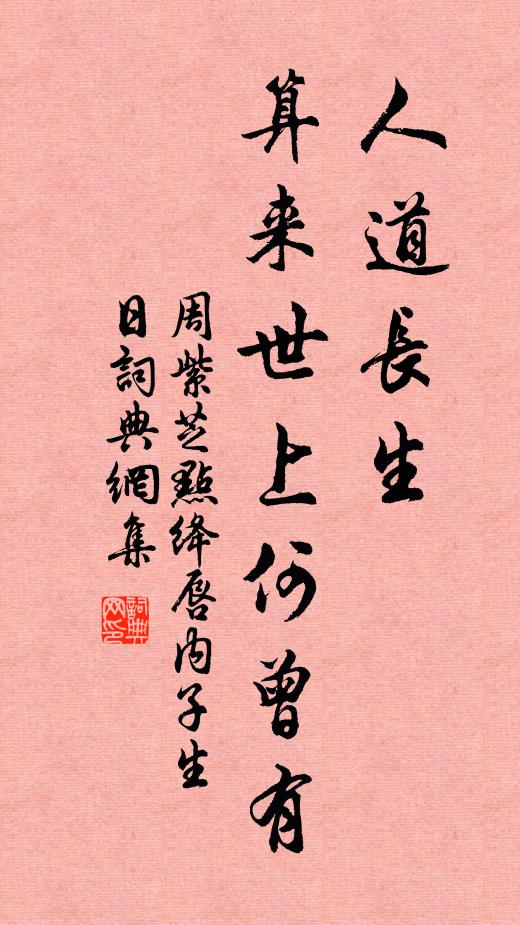 人道長生
算来世上何曾有
周紫芝點絳唇內子生
日詞典網集
詞典
网印